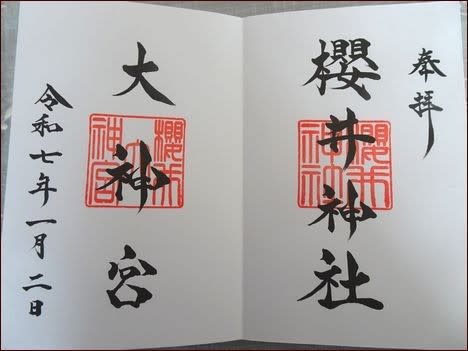 奉拝
櫻井神社
櫻井神社
大神宮
櫻井大神宮
令和七年一月二日